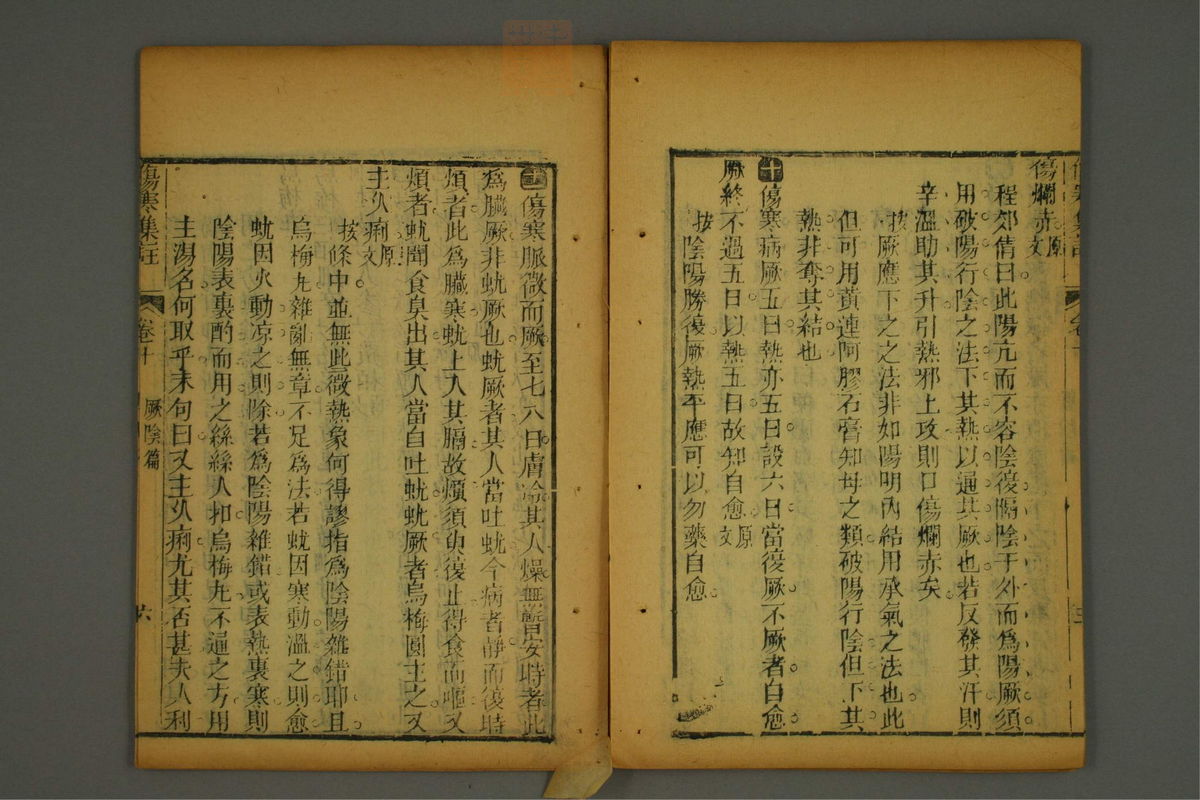 傷爛赤原文
程郊倩曰此陽亢而不容陰復隔陰于外而爲陽厥須
用破陽行陰之法下其熱以通其厥也若反發其汗則
辛溫助其升引熱邪上攻則口傷爛赤矣
按厥應下之之法非如陽明內結用承氣之法也此
但可用黃連阿膠石膏知母之類破陽行陰但下其
熱非奪其結也
傷寒病厥五日熱亦五日設六日當復厥不厥者自愈
厥終不過五日以熱五日故知自愈原文
按陰陽勝復厥熱平應可以勿藥自愈
傷寒脈微而厥至七八日膚冷其人燥無暫安時者此
爲臟厥非蚘厥也蚘厥者其人當吐蚘今病者靜而復時
煩者此爲臟寒蚘上入其膈故煩須臾復止得食而嘔又
煩者蚘聞食臭出其人當自吐蚘蚘厥者烏梅圓主之又
主久痢原文
按條中並無此微熱象何得謬指爲陰陽雜錯耶且
烏梅丸雜亂無章不足爲法若蚘因寒動溫之則愈
蚘因火動凉之則除若爲陰陽雜錯或表熱裏寒則
陰陽表裏酌而用之絲絲入扣烏梅丸不通之方用
主湯名何取乎末句曰又主久痢尤其否甚夫久利
傷寒集註 卷十 厥陰篇 六